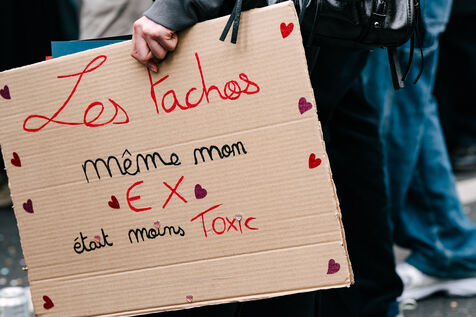 Les fachos
même mon
EX
était moins Toxic